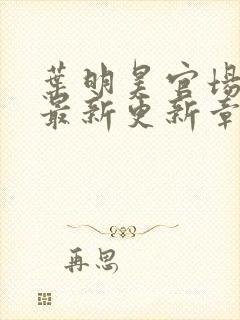 葉明昊官場
最新更新章
再思